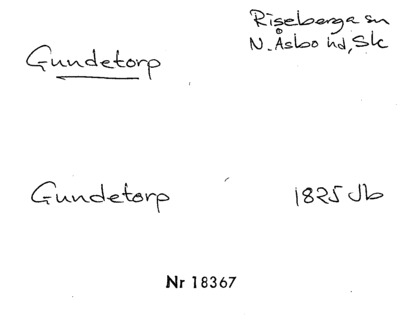 Gundetorp
Riseberga sn
N. Åsbo hd, Sk
Gundetorp
1825 Jb
Nr 18367